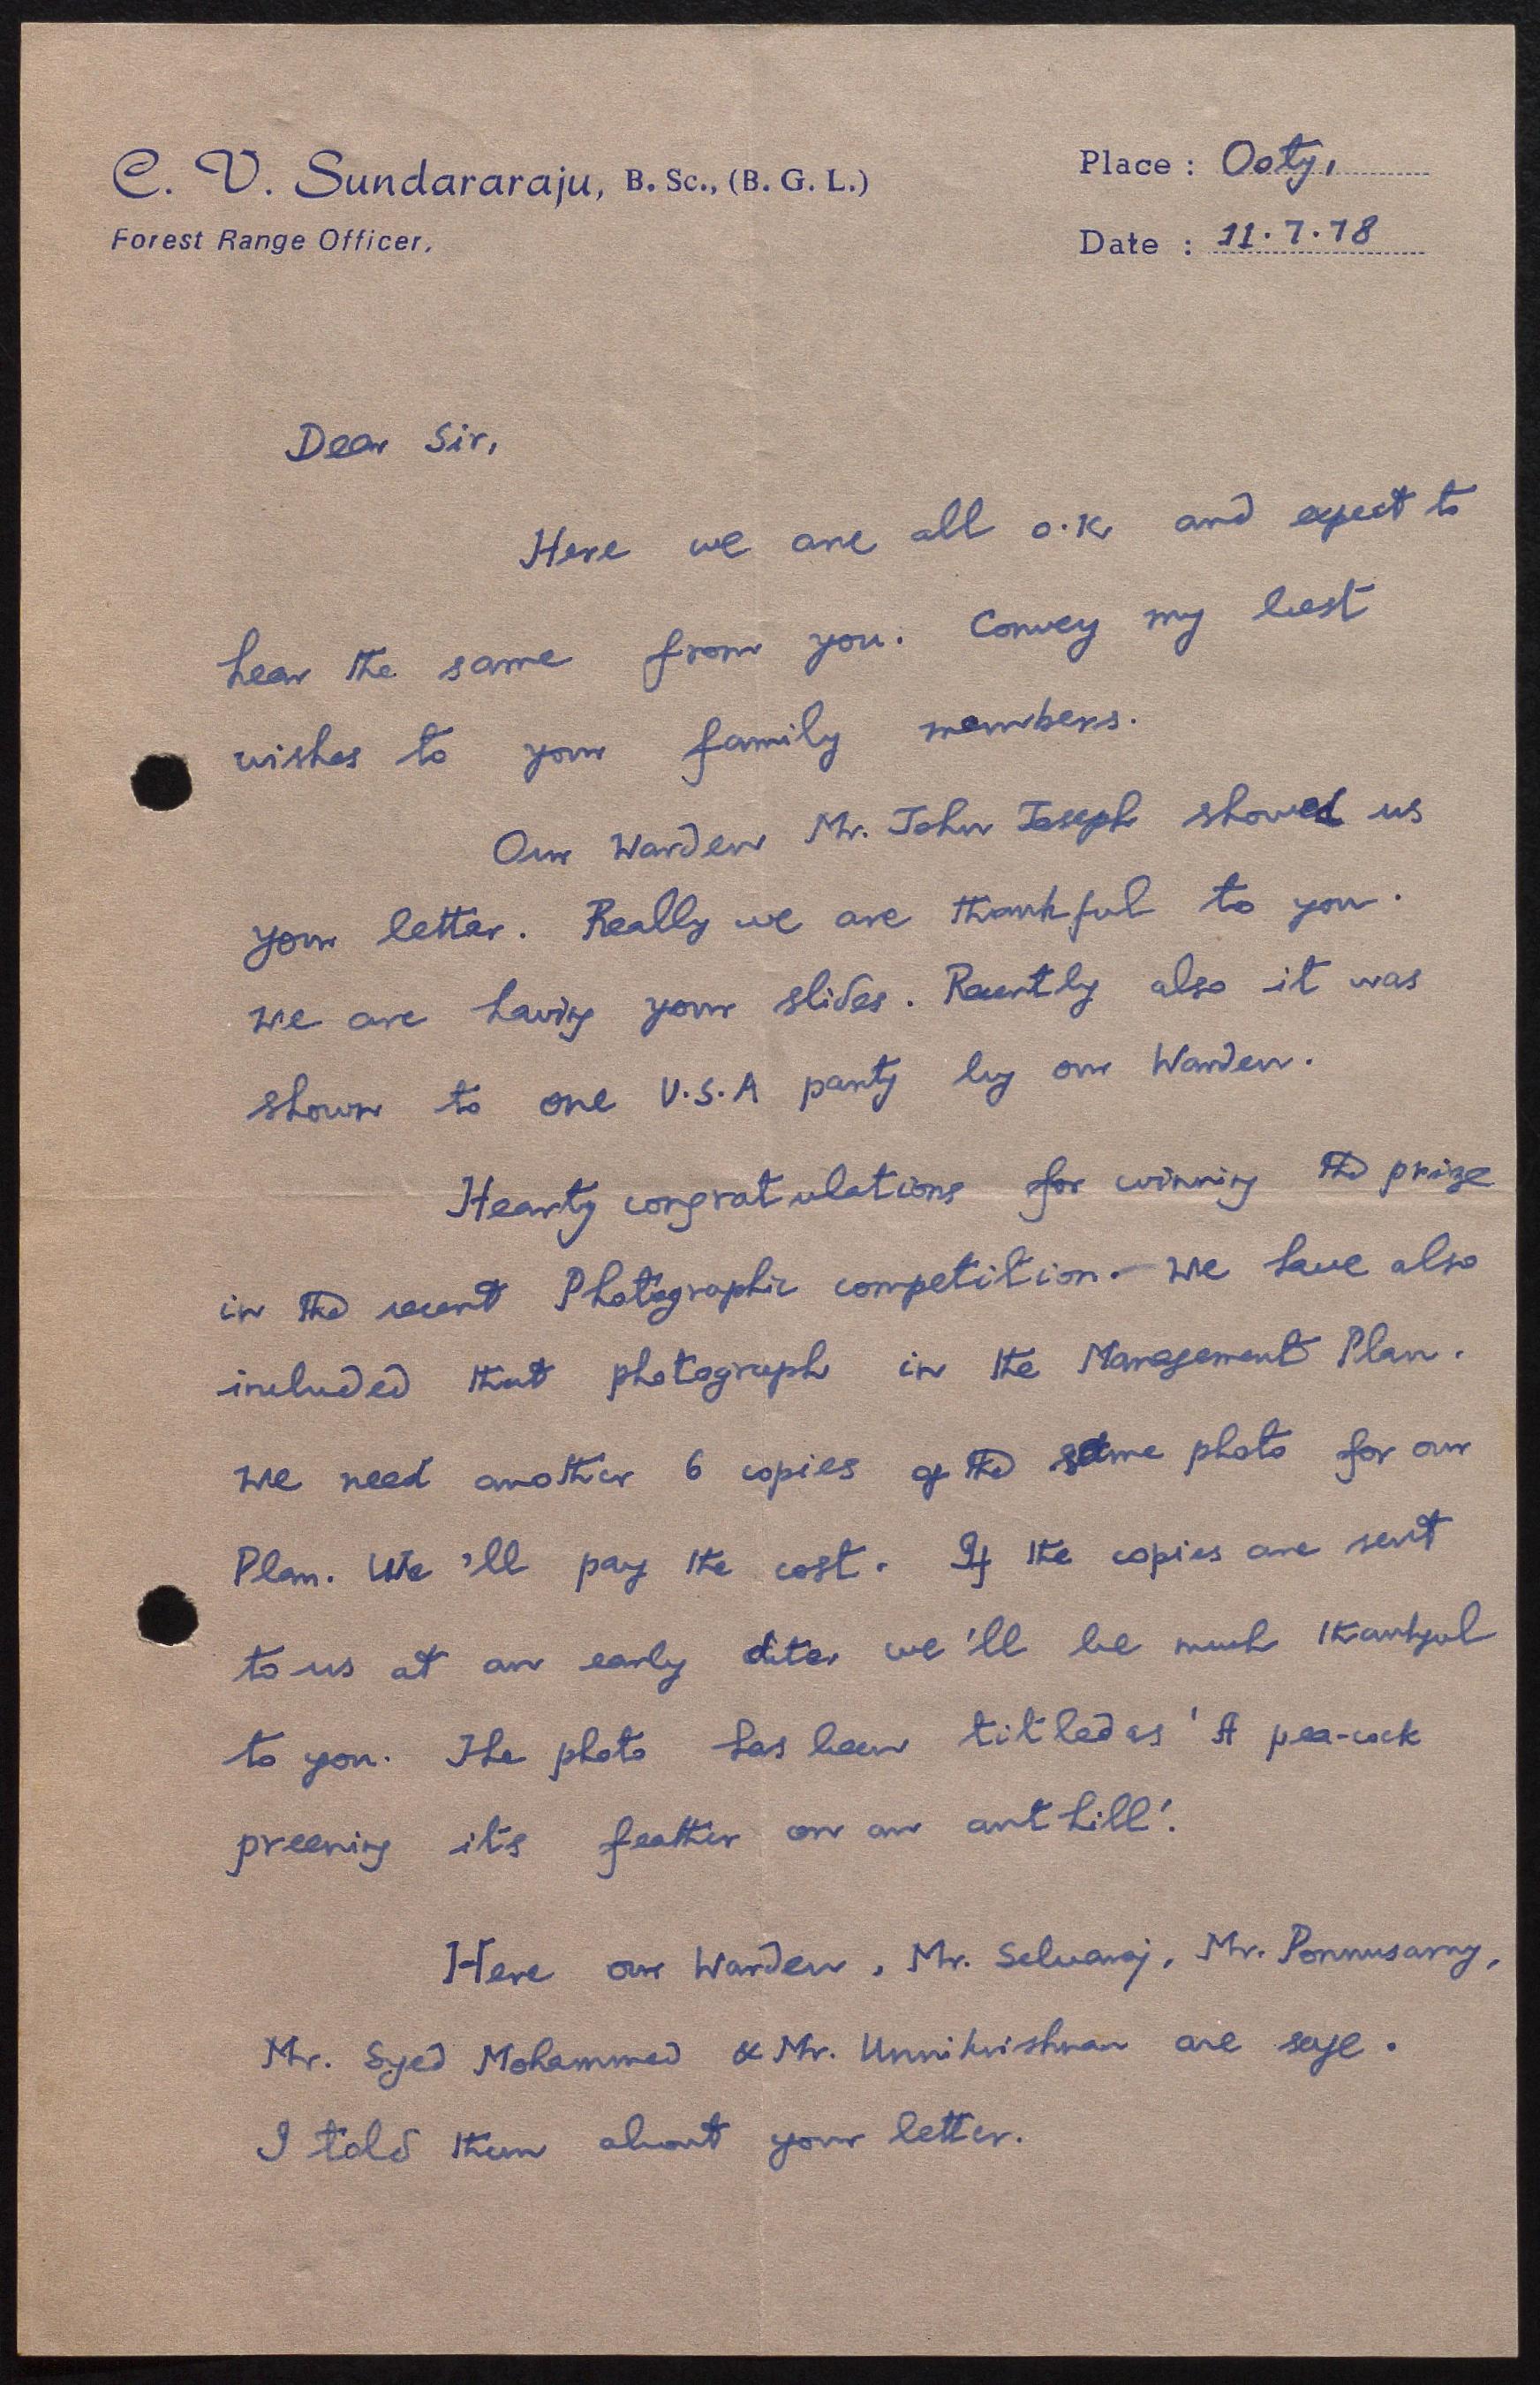 C. V. Sundararaju, B. Sc., (B. G. L.)
Forest Range Officer.
Place : Ooty,
Date : 11.7.78
Dear Sir,
Here we are all o.k and expect to
hear the same from you. Convey my best
wishes to your family members.
Our Warden Mr. John Joseph showed us
your letter. Really we are thankful to you.
We are having your slides. Recently also it was
shown to one U.S.A party by our Warden.
Hearty congratulations for winning the prize
in the recent Photographic competition. We have also
included that photograph in the Management Plan.
We need another 6 copies of the same photo for our
Plan. We'll pay the cost. If the copies are sent
to us at an early date, we'll be much thankful
to you. The photo has been titled as 'A pea-cock
preening its feather on an ant hill'.
Here our Warden, Mr. Selvaraj, Mr. Ponnusamy,
Mr. Syed Mohammed & Mr. Unnikrishnan are safe.
I told them about your letter.